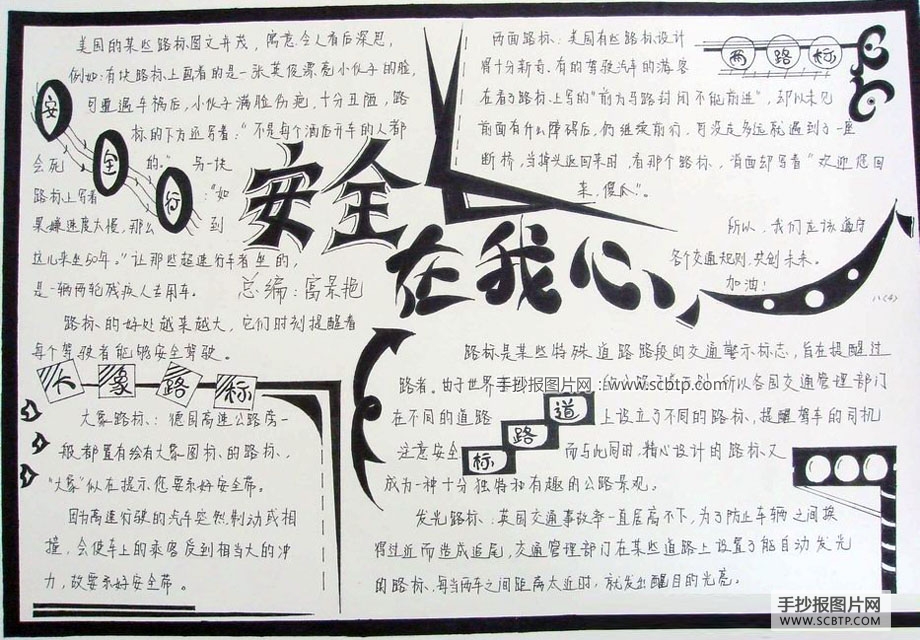 美国的某些路标图文并茂，寓意令人看后深思，
例如：有块路标上画着的是一张英俊漂亮小伙子的脸，
可重遇车祸后，小伙子满脸伤疤，十分丑陋，路
标的下方还写着：“不是每个酒后开车的人都
会死的。”另一块
路标上写着：“如
果嫌速度太慢，那么到
这儿来坐50年。”让那些超速行车者坐的，
是一辆两轮残疾人专用车。
路标的好处越来越大，它们时刻提醒着
每个驾驶者能够安全驾驶。
安全行
安全
在我心
总编：富景艳
两路标
两面路标：美国有些路标设计
得十分新奇，有的驾驶汽车的游客
在看了路标上写的“前方马路封闭不能前进”，却以未见
前面有什么障碍后，仍继续前行，可没走多远就遇到了一座
断桥，当掉头返回来时，看那个路标，背面却写着“欢迎您回
来，傻瓜”。
所以，我们应该遵守
各个交通规则，共创未来。
加油！
八（4）
大象路标
大象路标：德国高速公路旁一
般都置有绘有大象图标的路标，
“大象”似在提示您要系好安全带。
因高速行驶的汽车突然制动或相
撞，会使车上的乘客受到相当大的冲
力，故要系好安全带。
路标是某些特殊道路路段的交通警示标志，旨在提醒过
路者。由于世界
手抄报图片网：www.scbtp.com
所以各国交通管理部门
在不同的道路上设立了不同的路标，提醒驾车的司机
注意安全
标路道
而与此同时，精心设计的路标又
成为一种十分独特和有趣的公路景观。
发光路标：英国交通事故率一直居高不下，为了防止车辆之间挨
得过近而造成追尾，交通管理部门在某些道路上设置了能自动发光
的路标，每当两车之间距离太近时，就发出醒目的光亮。
手抄报图片网
WWW.SCBTP.COM